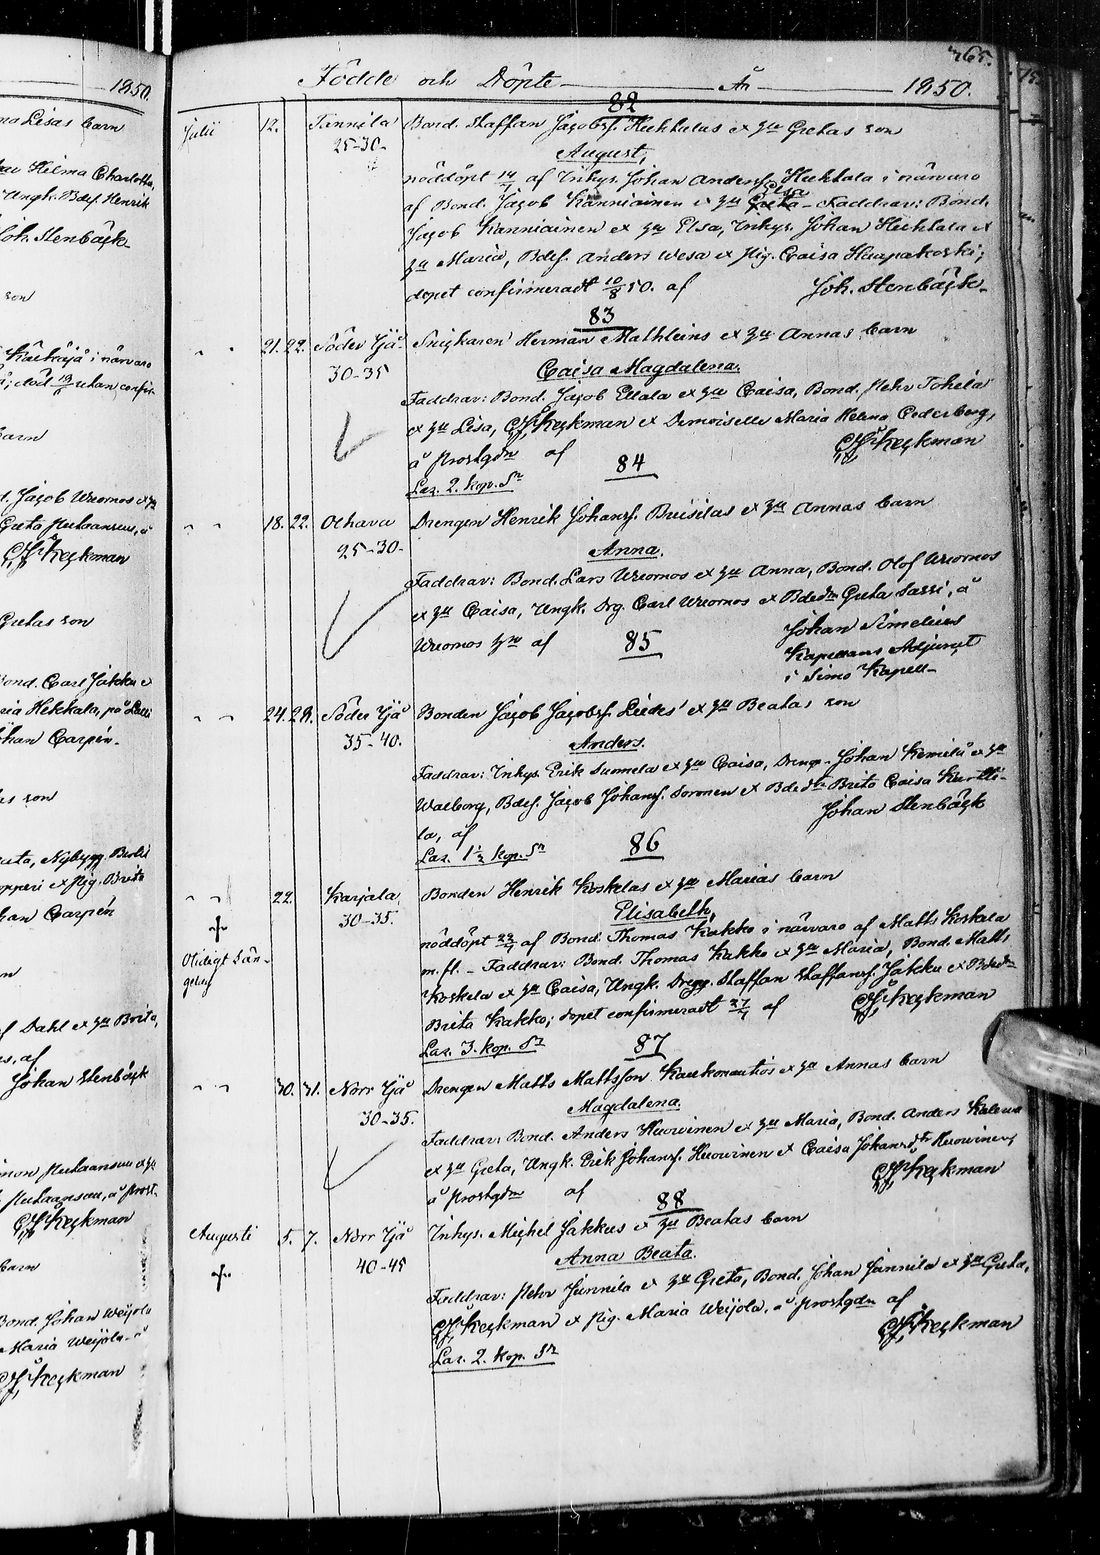 1850.
Lisas barn
Hilma Charlotta,
Ungk. Bdes. Henrik
Joh. Stenbäck
son
i närvaro
utan confir-
barn
Jacob Wuornos
Greta
CJ Keckman
Gretas son
Bond. Carl Jakku
Hekkala, på
Johan Carpén.
son
Nybygg.
Pig. Brita
Johan Carpén
Dahl et hu Brita,
af
Johan Stenbäck
CJ Keckman
barn
Bond. Johan Weijola
Maria Weijola
CJ Keckman
365.
Födde och Döpte År 1850.
82
Julii 12. Tannila Bond. Staffan Jacobss. Hekkalas et hu Gretas son
25-30. August,
nöddöpt 14/7 af Inhys. Johan Anderss. Hekkala i närvaro
af Bond. Jacob Kanniainen et hu Elsa - Faddrar: Bond.
Jacob Kanniainen et hu Elsa, Inhys. Johan Hekkala et
hu Maria, Bdes. Anders Wesa et Pig. Caisa Haapakoski;
dopet confirmeradt 10/8 50. af Joh. Stenbäck
83
" " 21. 22. Söder Ijå Snickaren Herman Mathleins et hu Annas barn
30-35 Caisa Magdalena.
Faddrar: Bond. Jacob Ellala et hu Caisa, Bond. Pehr Tokela
et hu Lisa, CJ Keckman et Demoiselle Maria Helena Cederberg,
å Prostgdn af CJ Keckman
84
Laz. 2. kop. Sr
" " 18. 22. Olhava Drengen Henrik Johanss. Buisilas et hu Annas barn
25-30. Anna.
Faddrar: Bond. Lars Wuornos et hu Anna, Bond. Olof Wuornos
et hu Caisa, Ungk. Drg. Carl Wuornos et Bdedr Greta Sassi, å
Wuornos hm af Johan Simelius
85 Kapellans Adjunct
i Simo Kapell
" " 24. 28. Söder Ijå Bonden Jacob Jacobss. Liedes' et hu Beatas son
35-40. Anders.
Faddrar: Inhys. Erik Suomela et hu Caisa, Dreng. Johan Kemilä et hu
Walborg, Bdes. Jacob Johanss. Soronen et Bdedr Brita Caisa Kurtti-
la, af Johan Stenbäck
86
Laz. 1½ kop. Sr
" " 22. Karjala, Bonden Henrik Koskelas et hu Marias barn
30-35. Elisabeth,
Otidigt Sän-
gelag
nöddöpt 22/7 af Bond. Thomas Kakko i närvaro af Matts Koskela
m. fl. - Faddrar: Bond. Thomas Kakko et hu Maria, Bond. Matts
Koskela et hu Caisa, Ungk. Dreng. Staffan Staffanss. Jakku et Bdedr
Brita Kakko; dopet confirmeradt 27/7 af CJ Keckman
Laz. 3. kop. Sr
87
" " 30. 31. Norr Ijå Drengen Matts Mattsson Kaukonautios et hu Annas barn
30-35. Magdalena.
Faddrar: Bond. Anders Huovinen et hu Maria, Bond. Anders Kaleva
et hu Greta, Ungk. Erik Johanss. Huovinen et Caisa Johansdtr Huovinen,
å Prostgdn af CJ Keckman
88
Augusti 5. 7. Norr Ijå Inhys. Michel Jakkus et hu Beatas barn
40-45 Anna Beata.
Faddrar: Pehr Junnila et hu Greta, Bond. Johan Jannila et hu Greta,
CJ Keckman et Pig. Maria Weijola, å Prostgdn af
CJ Keckman
Laz. 2. kop. Sr